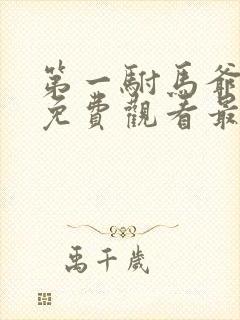 第一駙馬爺
免費觀看最
禹千歲